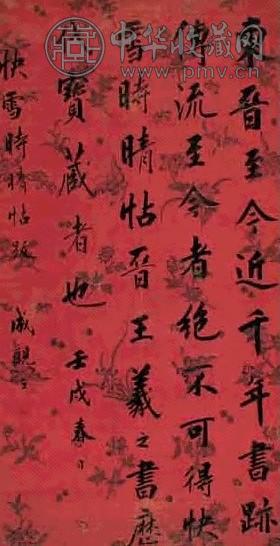 中华收藏网
www.pmv.cn
東晉至今近千年書跡
傳流至今者絕不可得快
雪時晴帖晉王羲之書歷
代寶藏者也 壬戌春日
快雪時晴帖跋